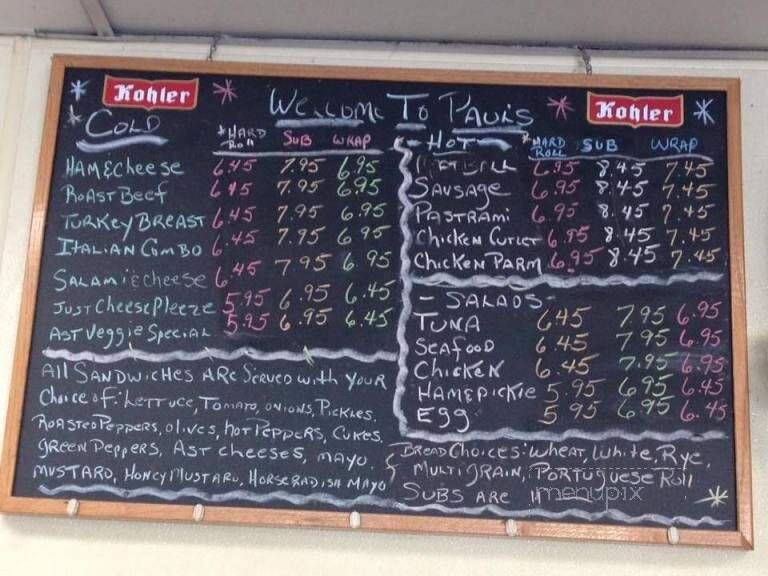 Kohler
Kohler
WELCOME To PAUL'S
COLD
HARD Roll SUB WRAP
HAM & Cheese 6.45 7.95 6.95
ROAST Beef 6.45 7.95 6.95
TURKEY BREAST 6.45 7.95 6.95
ITALIAN COMBO 6.45 7.95 6.95
SALAMI & cheese 6.45 7.95 6.95
JUST Cheese Pleeze 5.95 6.95 6.45
AST Veggie SPECIAL 5.95 6.95 6.45
All SANDWICHES ARe SeRVeD with YOUR
Choice of: LeTTUCe, TOMATO, ONIONS, PICKLES,
ROASTED PEPPERS, OLIVES, HOT PEPPERS, CUKES,
GREEN PEPPERS, AST cheeses, MAYO,
MUSTARD, HONEY MUSTARD, HORSERADISH MAYO
- HOT -
HARD ROLL SUB WRAP
6.95 8.45 7.45
SAUSAGE 6.95 8.45 7.45
PASTRAMI 6.95 8.45 7.45
Chicken CUTLET 6.95 8.45 7.45
Chicken PARM 6.95 8.45 7.45
- SALADS -
TUNA 6.45 7.95 6.95
SEAFOOD 6.45 7.95 6.95
CHICKEN 6.45 7.95 6.95
HAM & PICKLE 5.95 6.95 6.45
EGG 5.95 6.95 6.45
BREAD CHOICES: WHEAT, White, RYE,
MULTI GRAIN, PORTUGUESE Roll
SUBS ARE
menupix